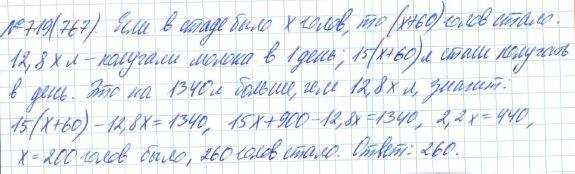 №719(767). Если в стаде было x голов, то (x+60) голов стало.
12,8x л – получали молока в 1 день; 15(x+60) л стали получать
в день. Это на 1340 л больше, чем 12,8x л, значит:
15(x+60) – 12,8x = 1340, 15x+900–12,8x=1340, 2,2x = 440,
x = 200 голов было, 260 голов стало. Ответ: 260.